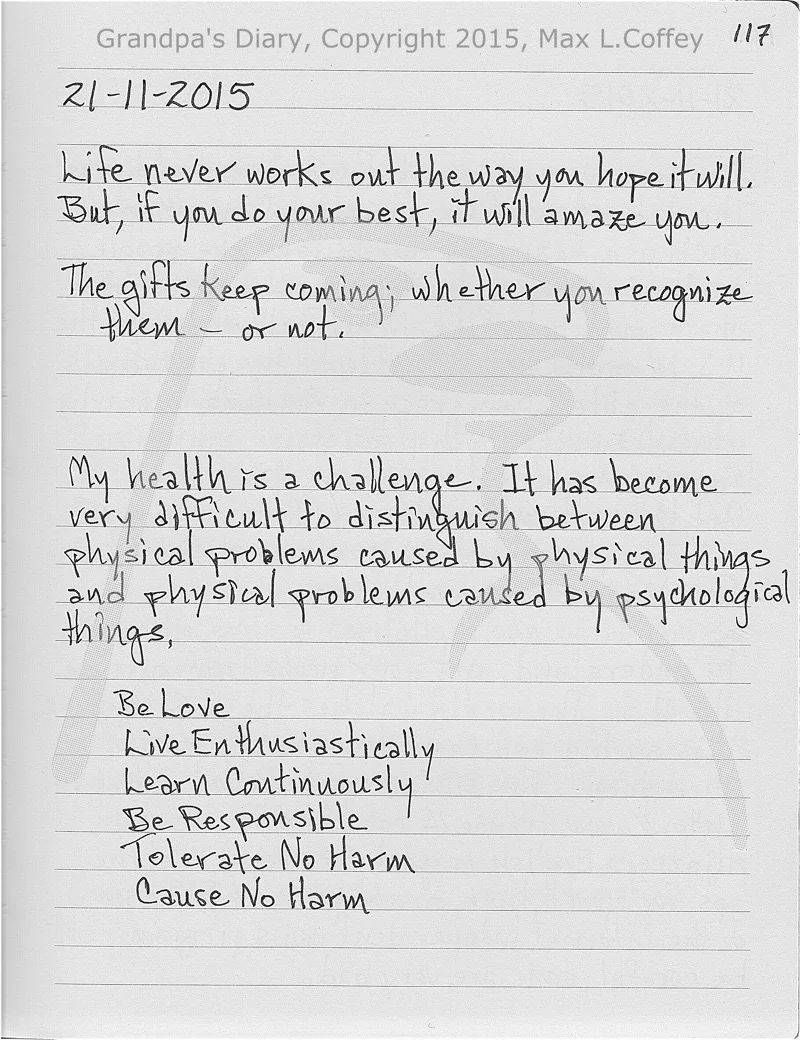 Grandpa's Diary, Copyright 2015, Max L.Coffey
117
21-11-2015
Life never works out the way you hope it will.
But, if you do your best, it will amaze you.
The gifts keep coming; whether you recognize
them — or not.
My health is a challenge. It has become
very difficult to distinguish between
physical problems caused by physical things
and physical problems caused by psychological
things.
Be Love
Live Enthusiastically
Learn Continuously
Be Responsible
Tolerate No Harm
Cause No Harm